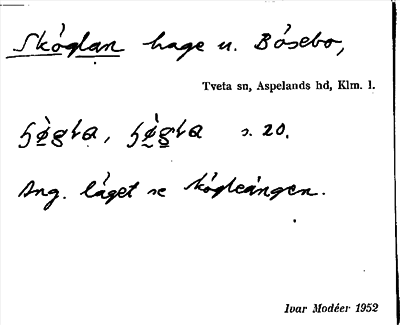 Skóglan hage u. Bósebo,
Tveta sn, Aspelands hd, Klm. l.
s. 20.
Ang. läget se kógleángen.
Ivar Modéer 1952